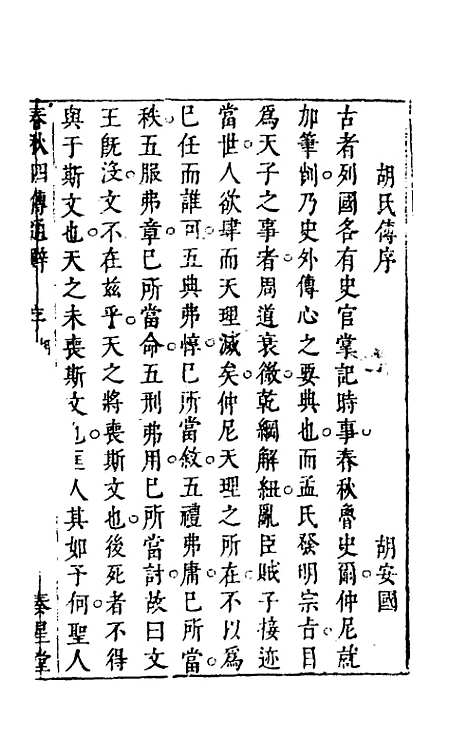 胡氏傳序　胡安國
古者列國各有史官掌記時事春秋魯史爾仲尼就
加筆削乃史外傳心之要典也而孟氏發明宗旨目
爲天子之事者周道衰微乾綱解紐亂臣賊子接迹
當世人欲肆而天理滅矣仲尼天理之所在不以爲
已任而誰可五典弗惇已所當敘五禮弗庸已所當
秩五服弗章已所當命五刑弗用已所當討故曰文
王旣沒文不在兹乎天之將喪斯文也後死者不得
與于斯文也天之未喪斯文也匡人其如予何聖人
春秋四傳 序 秦星堂